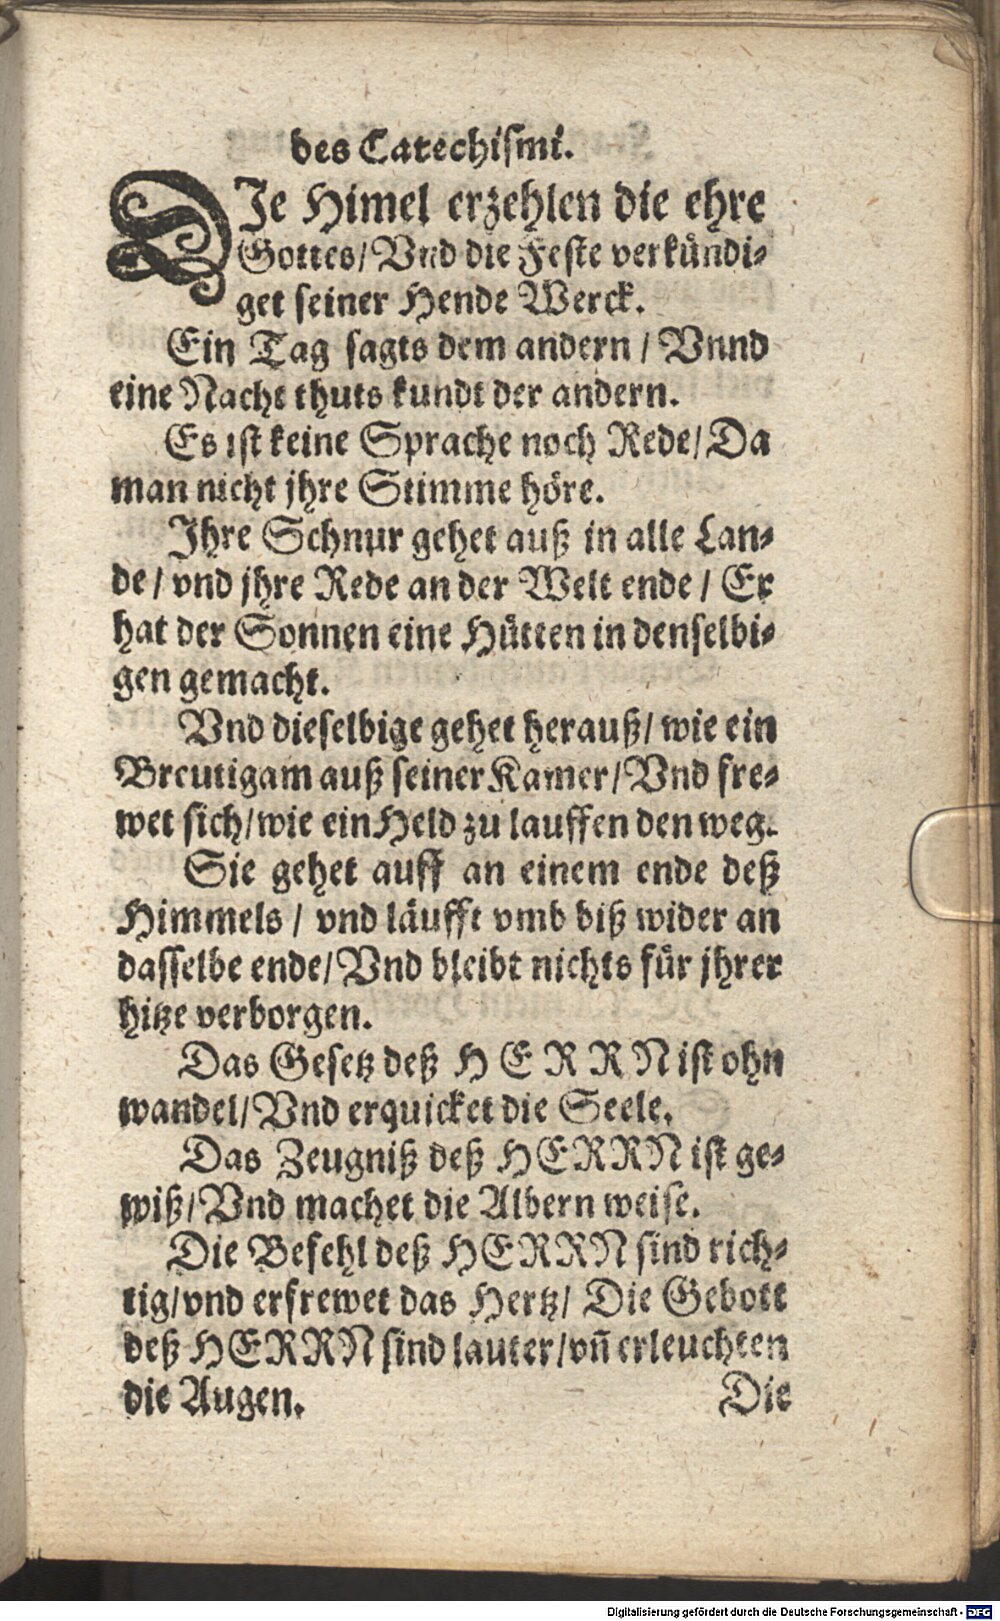 des Catechismi.
DJe Himel erzehlen die ehre
Gottes/ Vnd die Feste verkündi-
get seiner Hende Werck.
Ein Tag sagts dem andern / Vnnd
eine Nacht thuts kundt der andern.
Es ist keine Sprache noch Rede/ Da
man nicht jhre Stimme höre.
Jhre Schnur gehet auß in alle Lan-
de / vnd jhre Rede an der Welt ende / Er
hat der Sonnen eine Hütten in denselbi-
gen gemacht.
Vnd dieselbige gehet herauß/ wie ein
Breutigam auß seiner Kamer/ Vnd fre-
wet sich/ wie ein Held zu lauffen den weg.
Sie gehet auff an einem ende deß
Himmels / vnd läufft vmb biß wider an
dasselbe ende/ Vnd bleibt nichts für jhrer
hitze verborgen.
Das Gesetz deß HERRN ist ohn
wandel/ Vnd erquicket die Seele.
Das Zeugniß deß HERRN ist ge-
wiß/ Vnd machet die Albern weise.
Die Befehl deß HERRN sind rich-
tig/ vnd erfrewet das Hertz/ Die Gebott
deß HERRN sind lauter/ vñ erleuchten
die Augen. Die
Digitalisierung gefördert durch die Deutsche Forschungsgemeinschaft - DFG